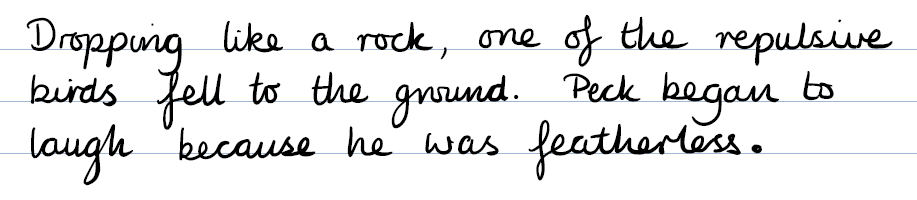 Dropping like a rock, one of the repulsive
birds fell to the ground. Peck began to
laugh because he was featherless.